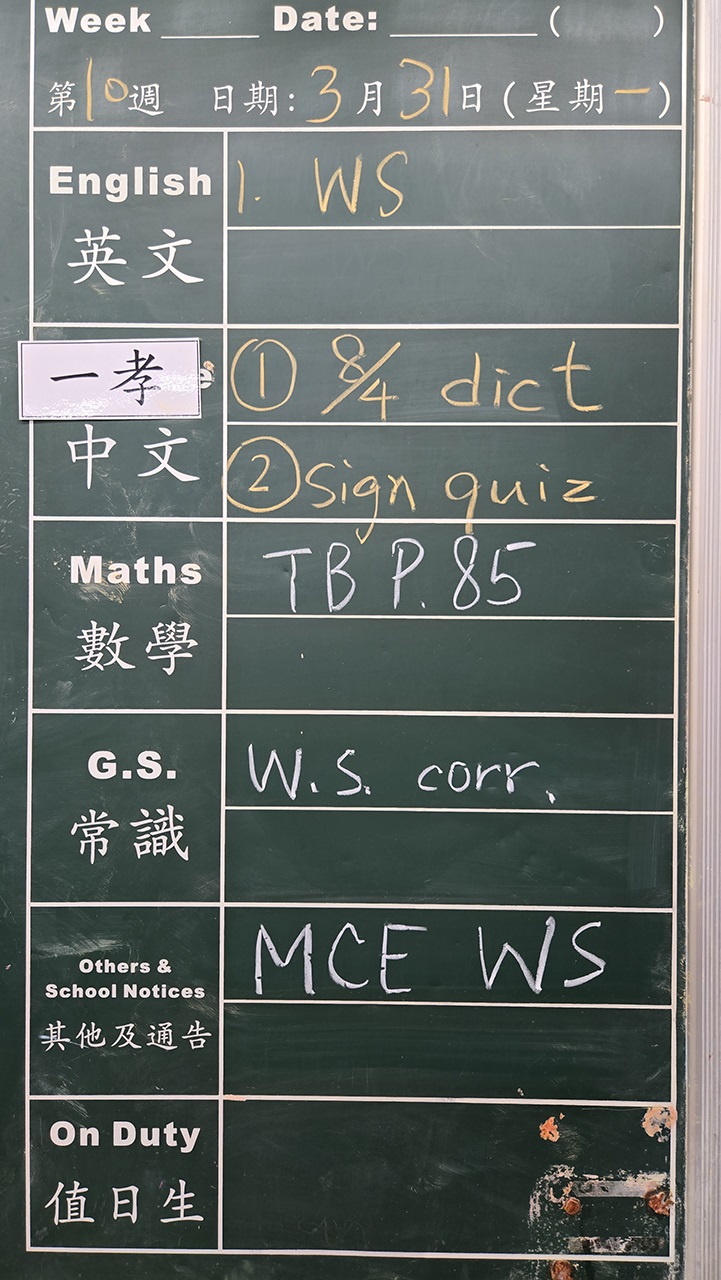 Week ____ Date: ________ ( )
第10週 日期:3月31日(星期一)
English
英文
1. WS
一孝
e
中文
① 8/4 dict
② sign quiz
Maths
數學
TB P.85
G.S.
常識
W.S. corr.
Others &
School Notices
其他及通告
MCE WS
On Duty
值日生